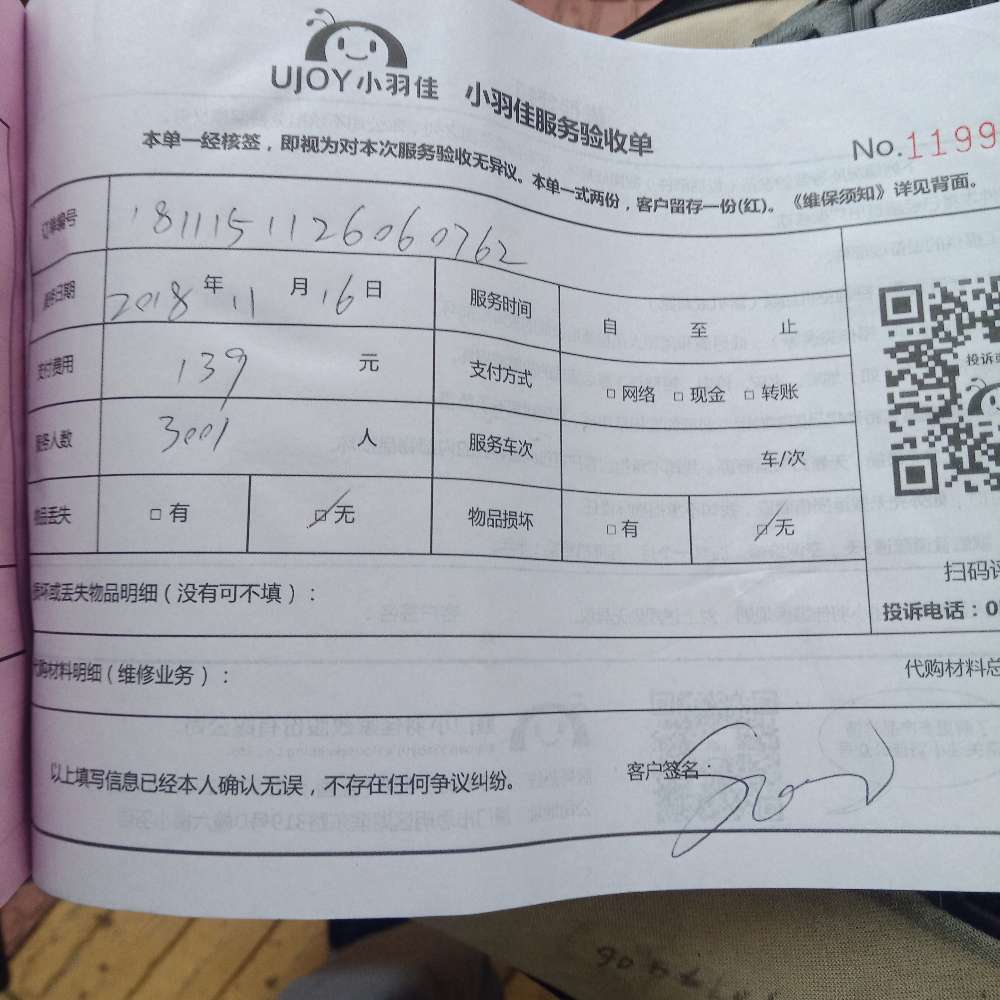 UJOY小羽佳 小羽佳服务验收单
No.1199
本单一经核签，即视为对本次服务验收无异议。本单一式两份，客户留存一份(红)。《维保须知》详见背面。
订单编号 181115112606 0762
服务日期 2018年11月16日 服务时间 自 至 止
支付费用 139 元 支付方式 □网络 □现金 □转账
服务人数 3001 人 服务车次 车/次
物品丢失 □有 □无 物品损坏 □有 □无
投诉
扫码评
损坏或丢失物品明细（没有可不填）：
投诉电话：0
代购材料明细（维修业务）：
代购材料总
以上填写信息已经本人确认无误，不存在任何争议纠纷。 客户签名：